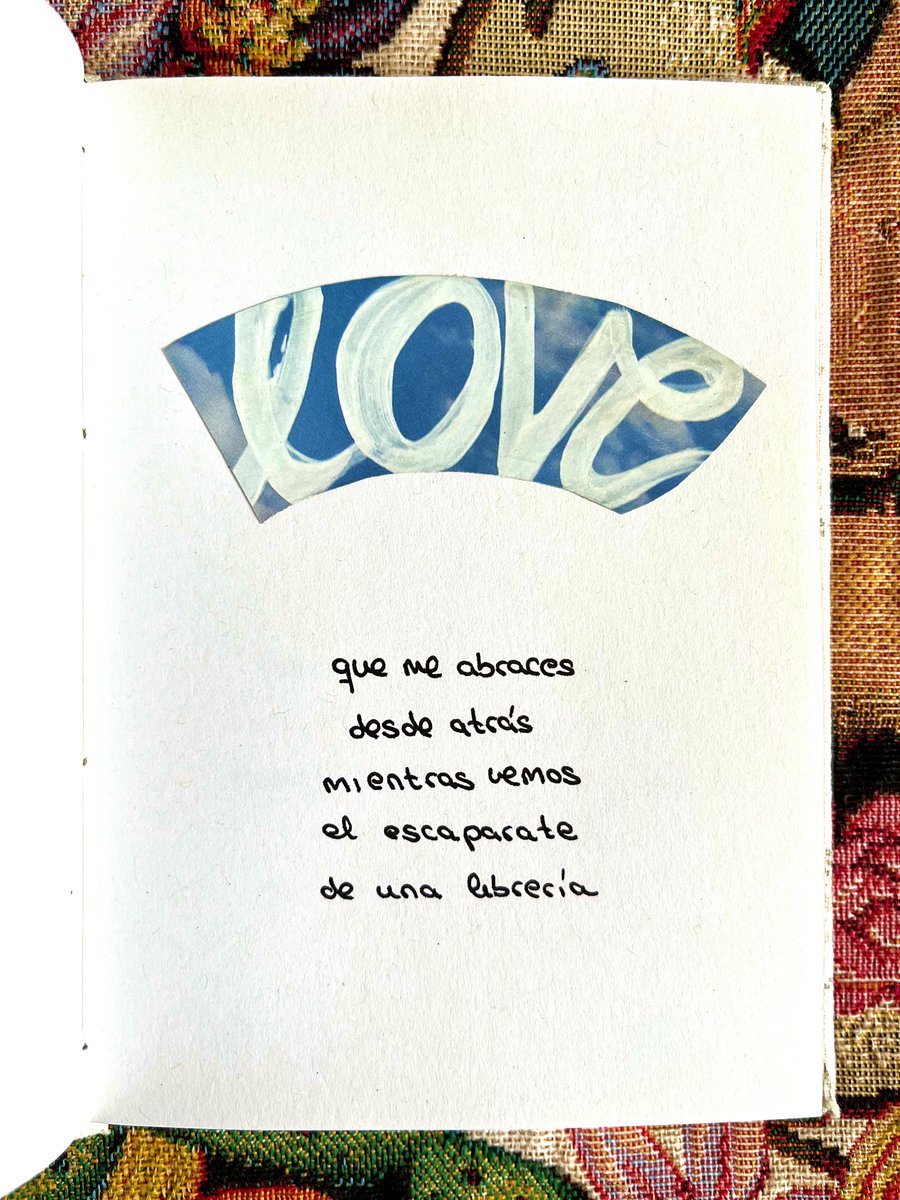 love
que me abraces
desde atrás
mientras vemos
el escaparate
de una librería